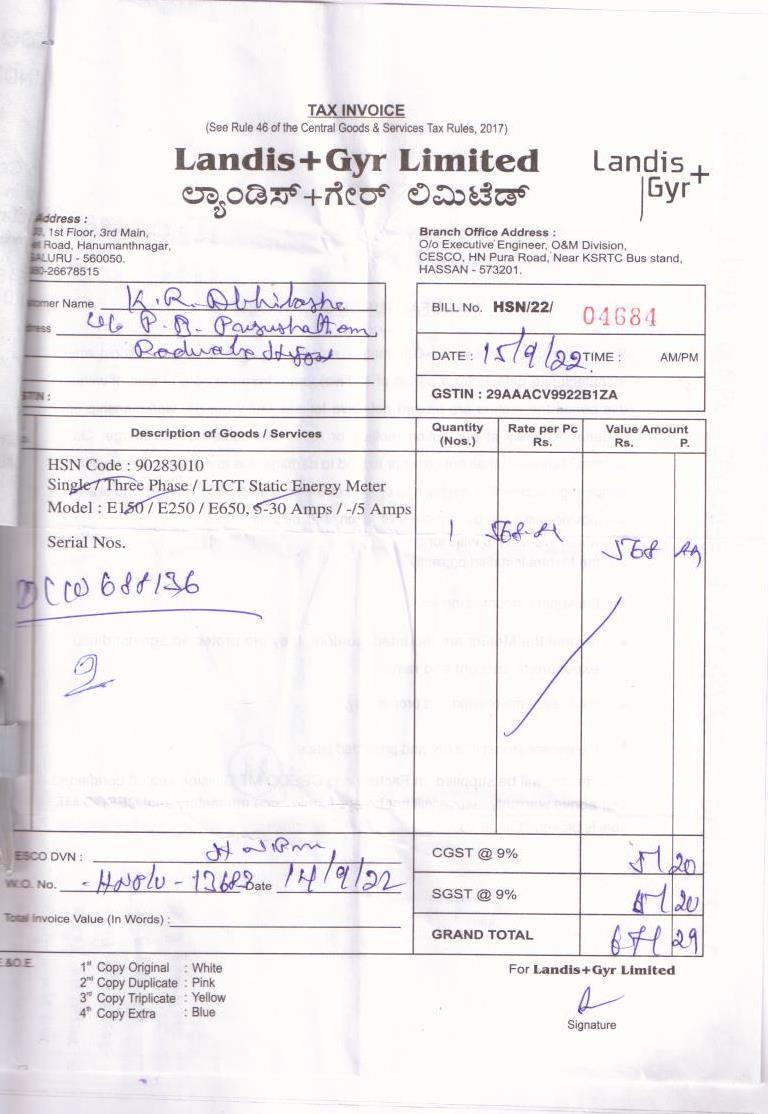 TAX INVOICE
(See Rule 46 of the Central Goods & Services Tax Rules, 2017)
Landis+Gyr Limited
ಲ್ಯಾಂಡಿಸ್+ಗೇರ್ ಲಿಮಿಟೆಡ್
Landis+
Gyr
Address :
1st Floor, 3rd Main,
Road, Hanumanthnagar,
ALURU - 560050.
080-26678515
Branch Office Address :
O/o Executive Engineer, O&M Division,
CESCO, HN Pura Road, Near KSRTC Bus stand,
HASSAN - 573201.
Name K. R. Abhilasha
P. R.
BILL No. HSN/22/ 04684
DATE : 15/9/22 TIME : AM/PM
GSTIN : 29AAACV9922B1ZA
GSTIN :
Description of Goods / Services
Quantity (Nos.)
Rate per Pc Rs.
Value Amount Rs. P.
HSN Code : 90283010
Single / Three Phase / LTCT Static Energy Meter
Model : E150 / E250 / E650, 5-30 Amps / -/5 Amps
1 568
Serial Nos.
688136
2
ESCO DVN :
W.O. No. Date 14/9/22
Total Invoice Value (In Words) :
CGST @ 9% 51 20
SGST @ 9% 51 20
GRAND TOTAL 671 29
E.&O.E.
1st Copy Original : White
2nd Copy Duplicate : Pink
3rd Copy Triplicate : Yellow
4th Copy Extra : Blue
For Landis+Gyr Limited
Signature